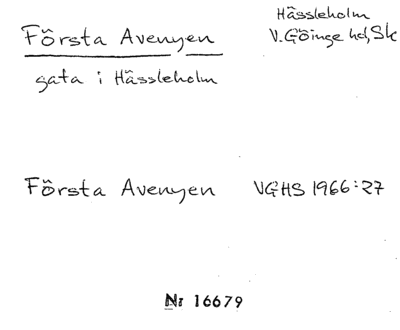 Första Avenyen
Hässleholm
V. Göinge hd, Sk
gata i Hässleholm
Första Avenyen VGHS 1966:27
Nr 16679